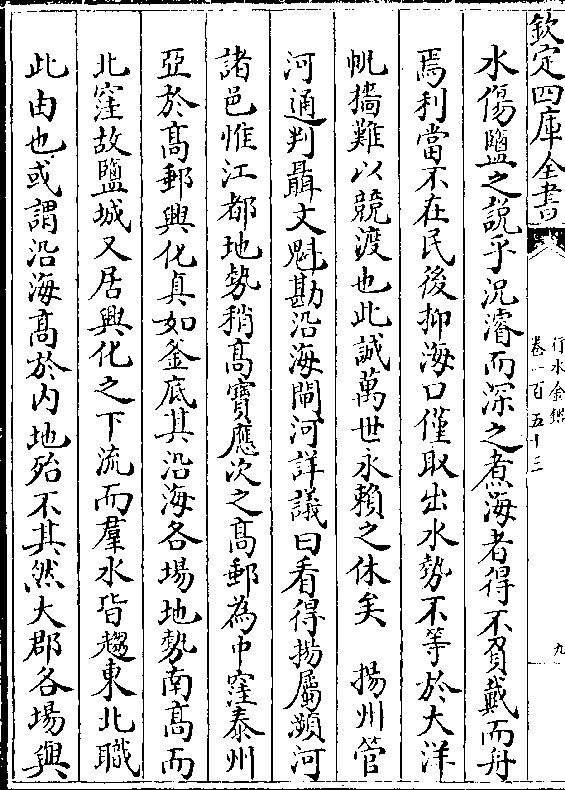 欽定四庫全書
行水金鑑
卷一百五十三
九
水傷鹽之說乎況濬而深之煮海者得不負戴而舟
焉利當不在民後抑海口僅取出水勢不等於大洋
帆檣難以競渡也此誠萬世永賴之休矣　揚州管
河通判聶文魁勘沿海閘河詳議曰看得揚屬瀕河
諸邑惟江都地勢稍高寶應次之高郵為中窪泰州
亞於高郵興化真如釜底其沿海各場地勢南高而
北窪故鹽城又居興化之下流而羣水皆趨東北職
此由也或謂沿海高於内地殆不其然大郡各場與